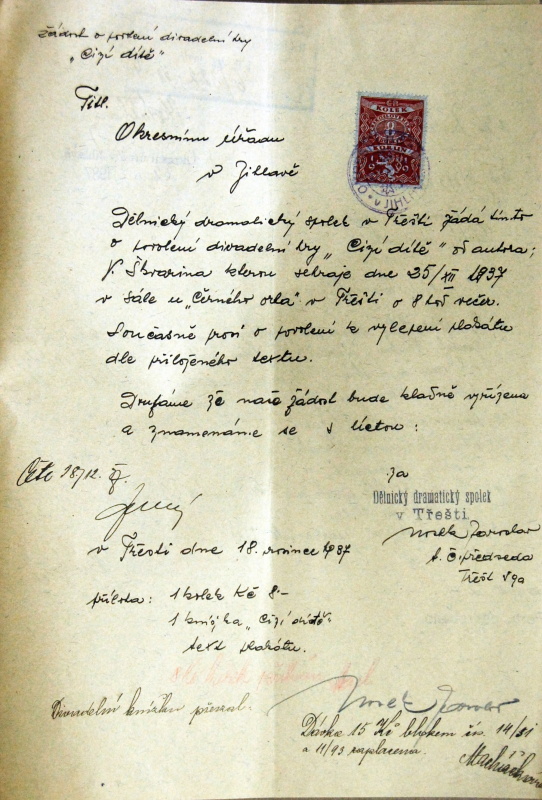 Žádost o povolení divadelní hry
„Cizí dítě"
Titl.
Okresnímu úřadu
v Jihlavě
KOLEK
KORUN
Dělnický dramatický spolek v Třešti žádá tímto
o povolení divadelní hry „Cizí dítě" od autora;
V. Škvarina kterou sehraje dne 25/XII 1937
v sále u „Černého orla" v Třešti o 8 hod večer.
Současně prosí o povolení k vylepení plakátu
dle přiloženého textu.
Doufáme že naše žádost bude kladně vyřízena
a znamenáme se s úctou:
18/12.
za
Dělnický dramatický spolek
v Třešti
Jaroslav
t. č. předseda
Třešť
v Třešti dne 18. prosince 1937
příloha: 1 kolek Kč 8.-
1 knížka „Cizí dítě"
text plakátu.
Divadelní knížku převzal:
Dávka 15 Kč blokem čís. 14/31
a 11/93 zaplacena.